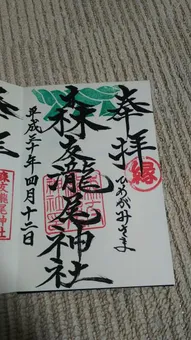 奉拝
縁
ひめがみさま
森友瀧尾神社
平成三十年四月十二日
森友瀧尾神社